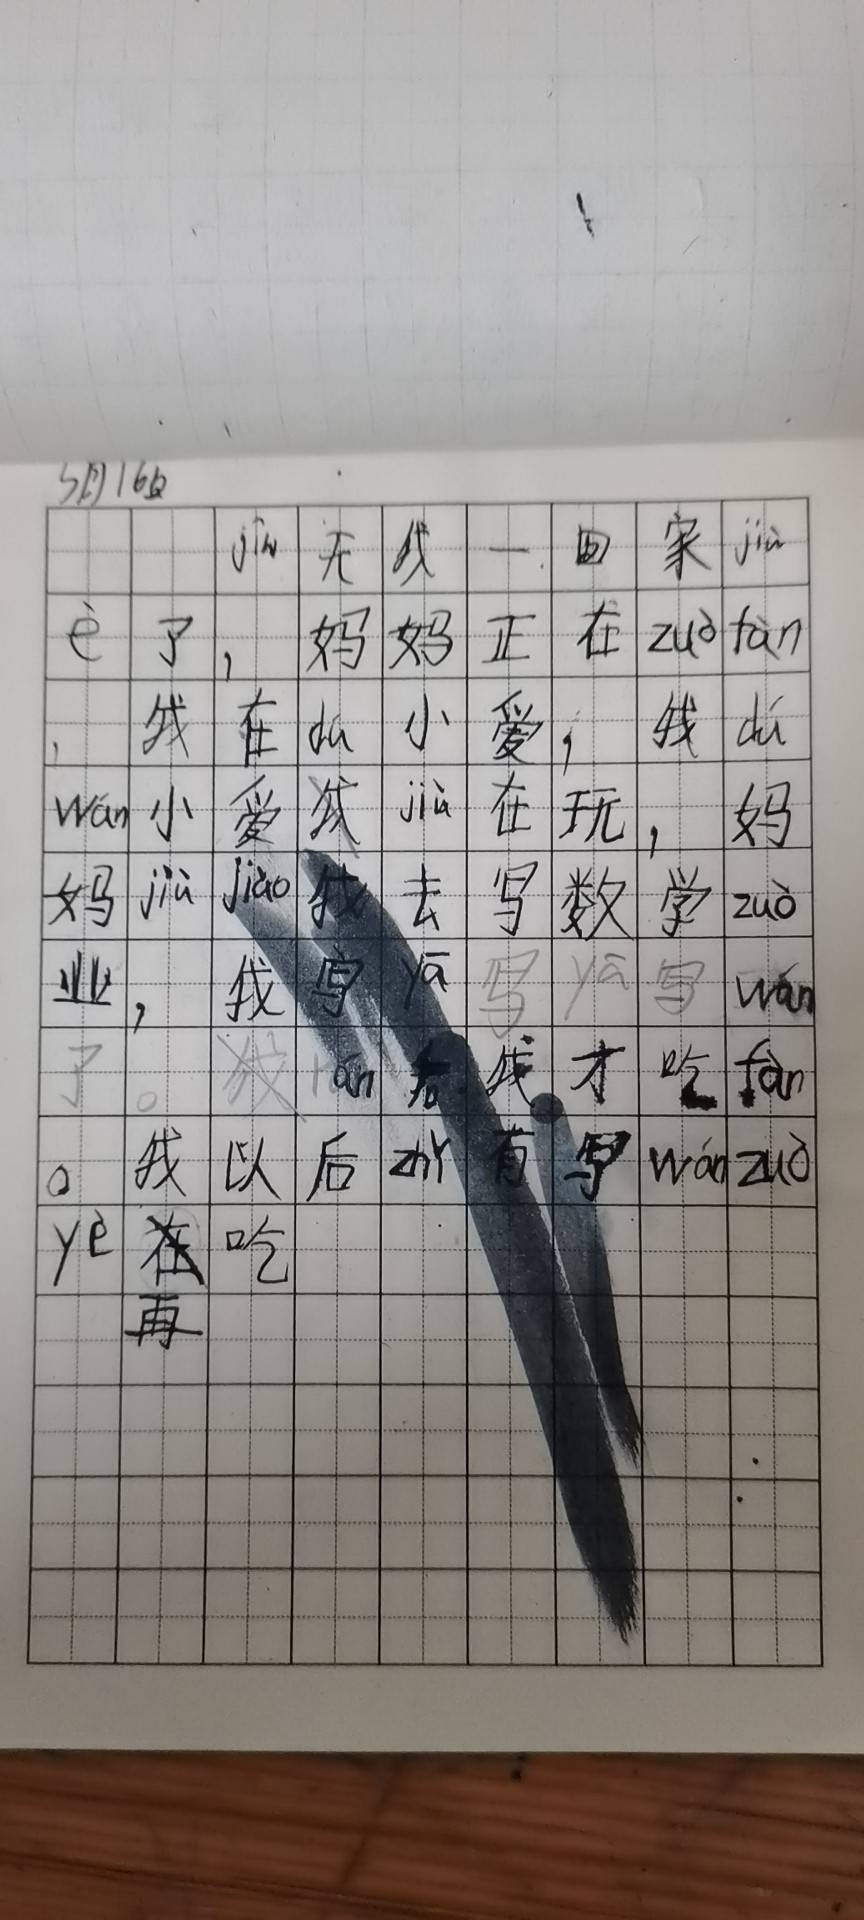 5月16日
jīn天我一回家jiù
è了，妈妈正在zuòfàn
，我在dú小爱，我dú
wán小爱我jiù在玩，妈
妈jiùjiào我去写数学zuò
业，我写yā写yā写wán
了。我rán后我才吃fàn
。我以后zhǐ有写wánzuò
yè在吃
再